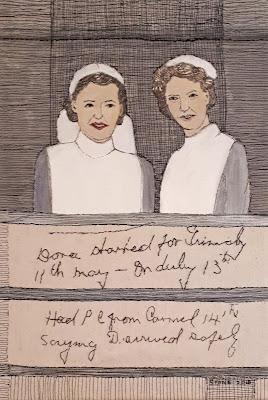 Dora started for Grimsby
11th May - On duty 13th
Had P C from Carmel 14th
Saying D arrived safely
STONE 2018